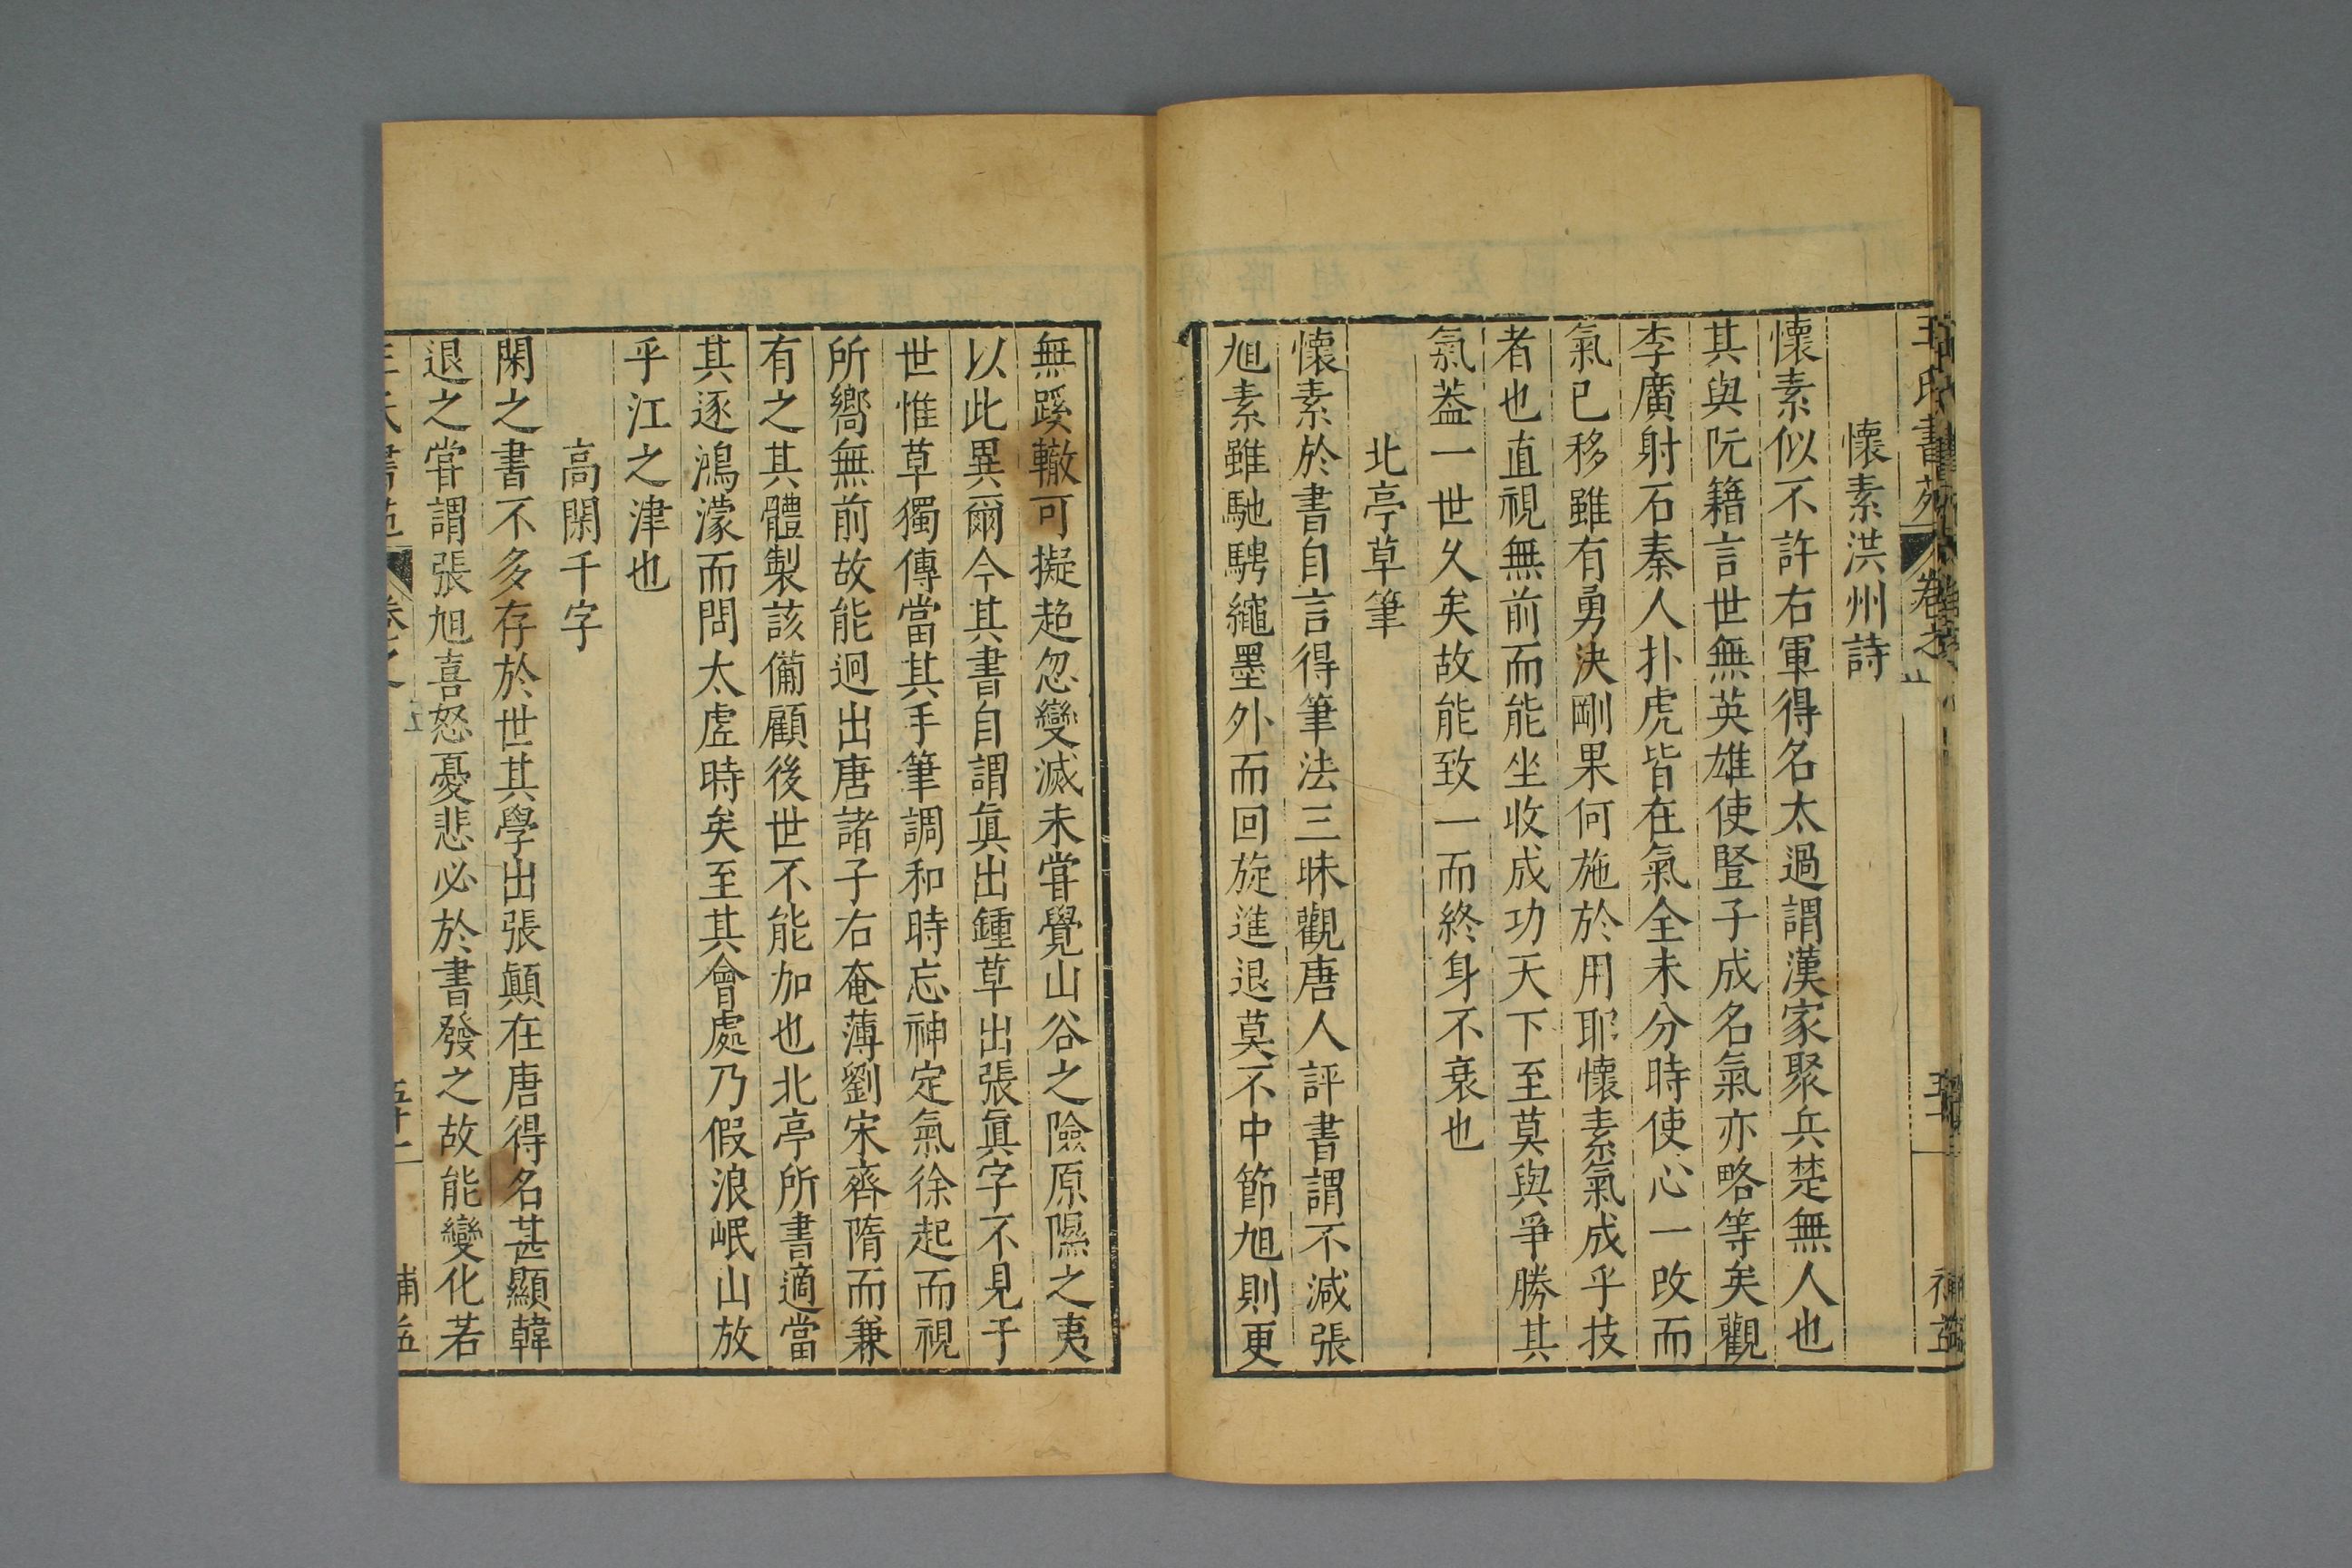 王氏書苑 卷之
懷素洪州詩
懷素似不許右軍得名太過謂漢家聚兵楚無人也
其與阮籍言世無英雄使豎子成名氣亦略等矣觀
李廣射石秦人扑虎皆在氣全未分時使心一改而
氣已移雖有勇決剛果何施於用耶懷素氣成乎技
者也直視無前而能坐收成功天下至莫與爭勝其
氣葢一世久矣故能致一而終身不衰也
北亭草筆
懷素於書自言得筆法三昧觀唐人評書謂不減張
旭素雖馳騁繩墨外而回旋進退莫不中節旭則更
無蹊轍可擬超忽變滅未甞覺山谷之險原隰之夷
以此異爾今其書自謂眞出鍾草出張眞字不見于
世惟草獨傳當其手筆調和時忘神定氣徐起而視
所嚮無前故能迥出唐諸子右奄薄劉宋齊隋而兼
有之其體製該備顧後世不能加也北亭所書適當
其逐鴻濛而問太虗時矣至其會處乃假浪岷山放
乎江之津也
高閑千字
閑之書不多存於世其學出張顛在唐得名甚顯韓
退之甞謂張旭喜怒憂悲必於書發之故能變化若
王氏書苑 卷之五 五十一 補益